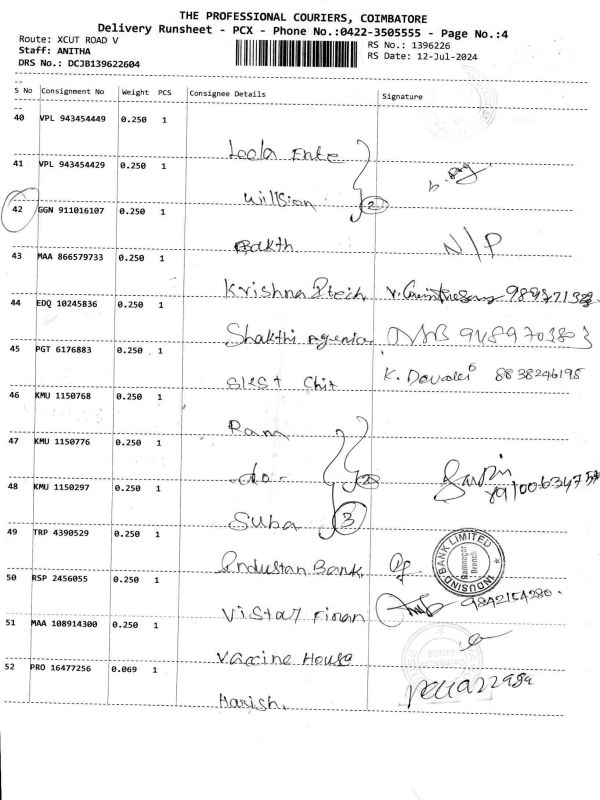 THE PROFESSIONAL COURIERS, COIMBATORE
Delivery Runsheet - PCX - Phone No.:0422-3505555 - Page No.:4
Route: XCUT ROAD V
Staff: ANITHA
DRS No.: DCJB139622604
RS No.: 1396226
RS Date: 12-Jul-2024
S No Consignment No Weight PCS Consignee Details Signature
40 VPL 943454449 0.250 1
Leela Ente
41 VPL 943454429 0.250 1
Willsion 2
42 GGN 911016107 0.250 1
Bakth N/P
43 MAA 866579733 0.250 1
Krishna Stech
44 EDQ 10245836 0.250 1
Shakthi Agencia 9489703803
45 PGT 6176883 0.250 1
Chit K. Devaki 8838246195
46 KMU 1150768 0.250 1
Ram
47 KMU 1150776 0.250 1
-do- 2
48 KMU 1150297 0.250 1
Suba 3
49 TRP 4390529 0.250 1
Industan Bank INDUSIND BANK LIMITED Ramnagar Branch
50 RSP 2456055 0.250 1
Vistar Finan 9842154280.
51 MAA 108914300 0.250 1
Vaccine House
52 PRO 16477256 0.069 1
Harish.